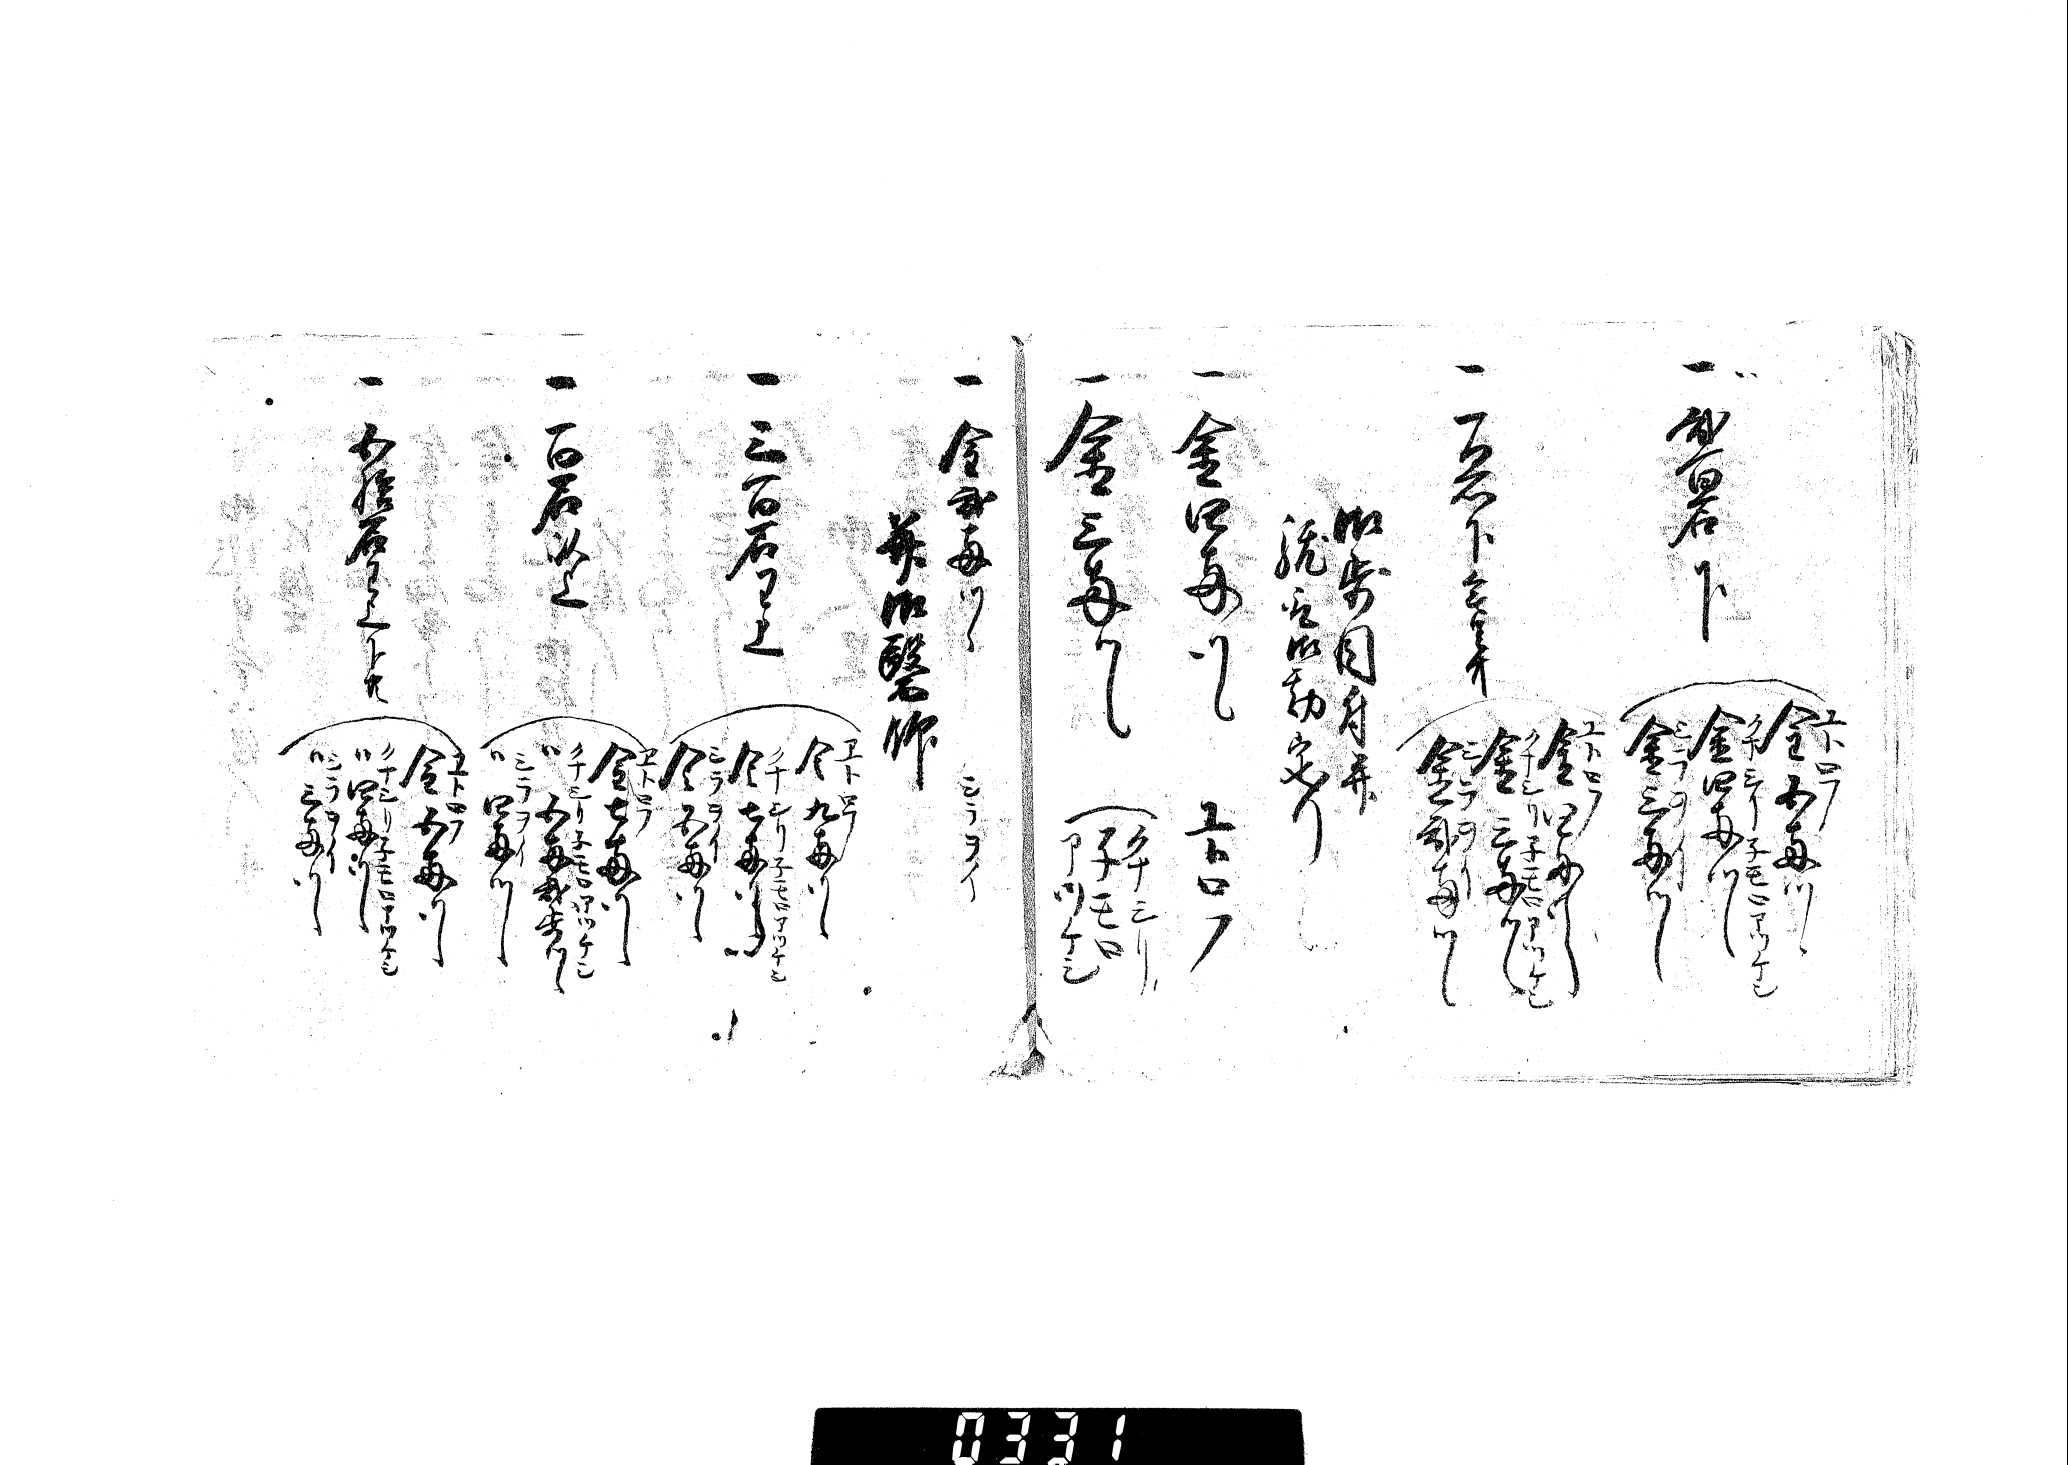 一 弐百石以下
ヱトロフ
金五両ツヽ
クナシリ子モロアツケシ
金四両ツヽ
シラヲイ
金三両ツヽ
一 百石以下
ヱトロフ
金四両ツヽ
クナシリ子モロアツケシ
金三両ツヽ
シラヲイ
金弐両ツヽ
御歩目付并
御勘定
一 金四両ツヽ ヱトロフ
一 金三両ツヽ
クナシリ
子モロ
アツケシ
一 金弐両ツヽ シラヲイ
并御醫師
一 三百石以上
ヱトロフ
金九両ツヽ
クナシリ子モロアツケシ
金七両ツヽ
シラヲイ
金五両ツヽ
一 百石以上
ヱトロフ
金七両ツヽ
クナシリ子モロアツケシ
〃五両弐歩ツヽ
シラヲイ
〃四両ツヽ
一 五拾石以上以下共
ヱトロフ
金五両ツヽ
クナシリ子モロアツケシ
〃四両ツヽ
シラヲイ
〃三両ツヽ
0331